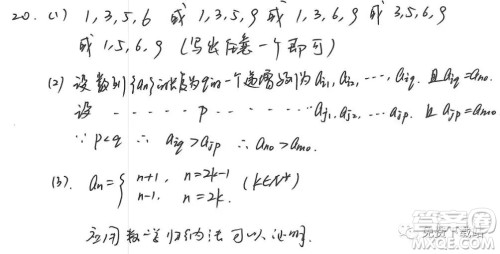 20. (1) 1,3,5,6 或 1,3,5,9 或 1,3,6,9 或 3,5,6,9
或 1,5,6,9 (写出任意一个即可)
(2) 设数列{an}的长度为q的一个递增子列为 ai1, ai2, …, aiq. 且 aiq = an0.
设 ······ p ········ aj1, aj2, … ajp. 且 ajp = am0
∵ p<q ∴ aiq > ajp ∴ an0 > am0.
(3). an = { n+1, n=2k-1 (k∈N*)
n-1, n=2k.
应用数学归纳法可以证明.
答案圈
免费下载站